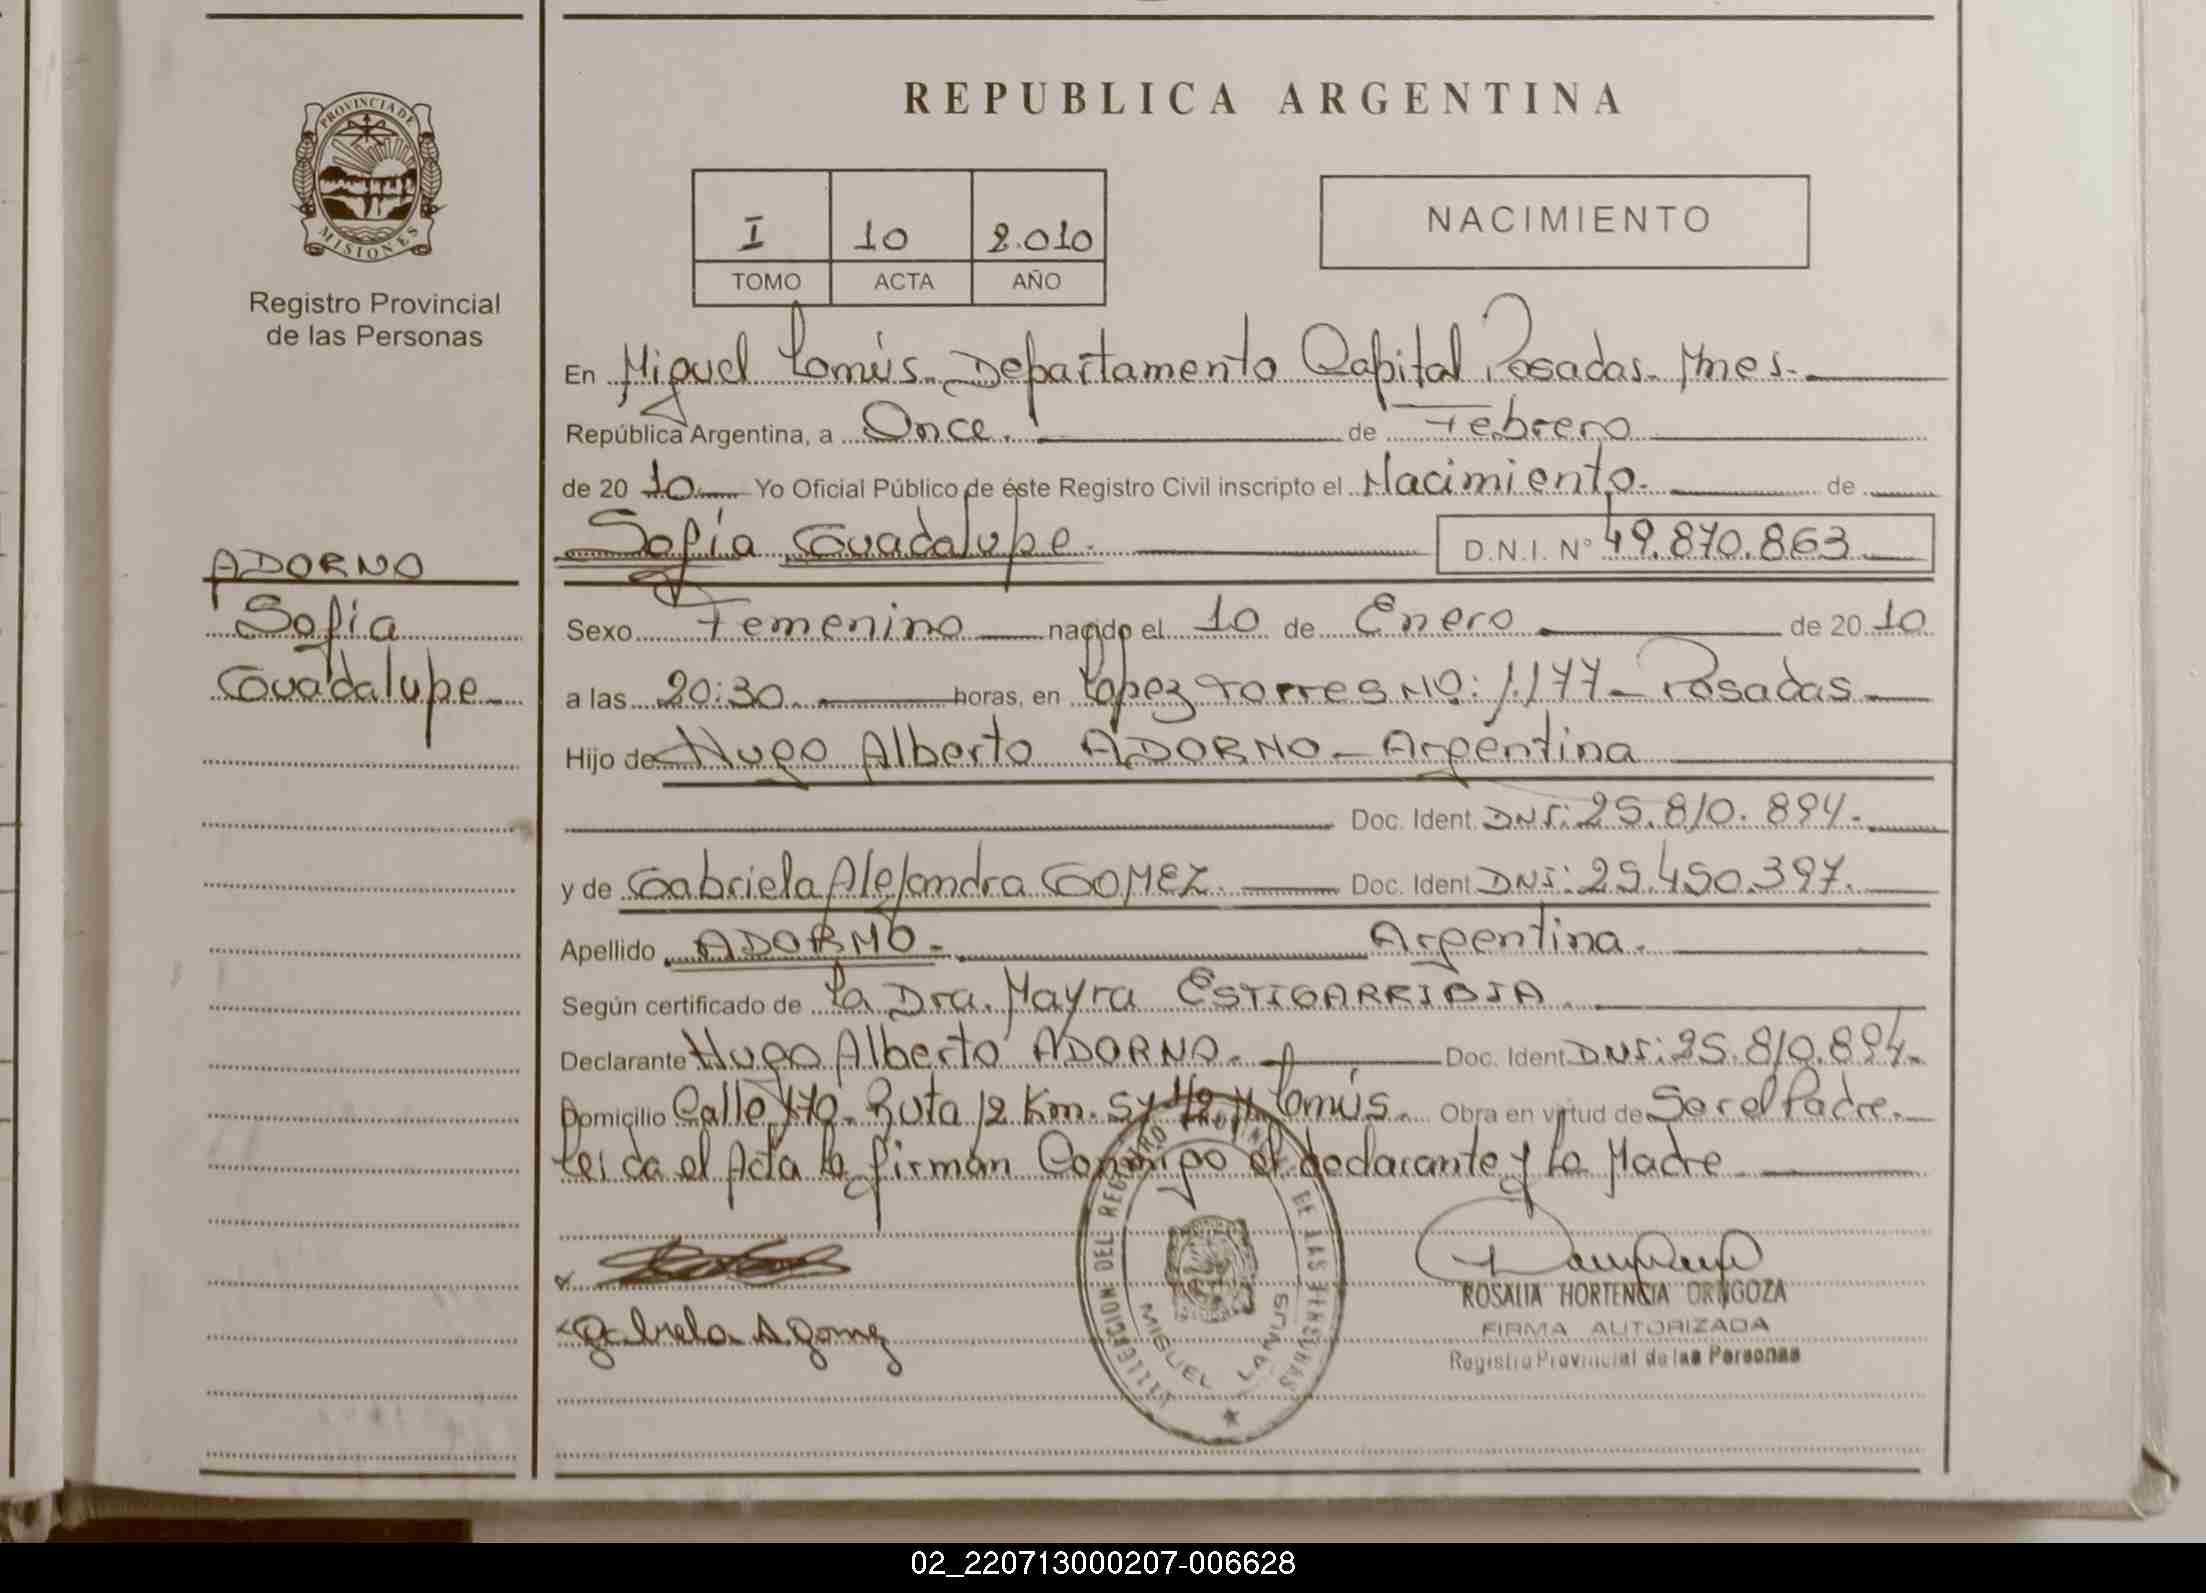 REPUBLICA ARGENTINA
PROVINCIA DE
MISIONES
Registro Provincial
de las Personas
I 10 2.010
TOMO ACTA AÑO
NACIMIENTO
En Miguel Lanús. Departamento Capital Posadas. Mnes.
República Argentina, a Once. de Febrero
de 20 10 Yo Oficial Público de éste Registro Civil inscripto el Nacimiento. de
Sofía Guadalupe. D.N.I. Nº 49.870.863
ADORNO
Sofía
Guadalupe
Sexo Femenino nacido el 10 de Enero de 20 10
a las 20:30. horas, en López Torres Nº: 1.177 - Posadas
Hijo de Hugo Alberto ADORNO - Argentina
Doc. Ident. DNI: 25.810.894.
y de Gabriela Alejandra GOMEZ. Doc. Ident. DNI: 29.450.397.
Apellido ADORNO. Argentina.
Según certificado de La Dra. Mayra ESTIGARRIBIA.
Declarante Hugo Alberto ADORNO. Doc. Ident. DNI: 25.810.894.
Domicilio Calle 170. Ruta 12 Km. 5 y 1/2 M Lanús. Obra en virtud de Ser el Padre.
Leída el Acta la firman Conmigo el declarante y la Madre
Gabriela A. Gomez
DELEGACION DEL REGISTRO PROVINCIAL DE LAS PERSONAS
MIGUEL LANUS
ROSALIA HORTENCIA ORTIGOZA
FIRMA AUTORIZADA
Registro Provincial de las Personas
02_220713000207-006628